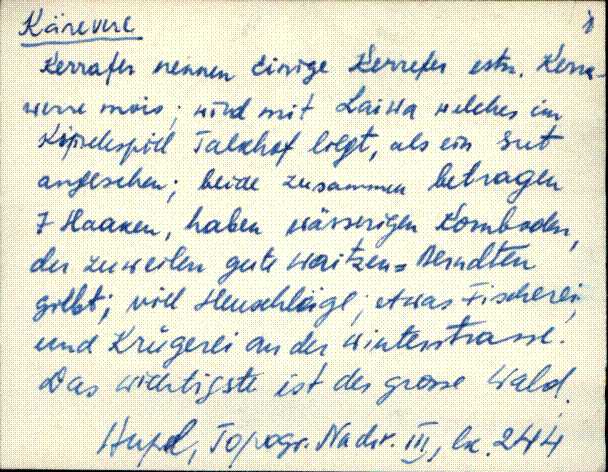 Kärevere
Kerrafer nennen einige Kerrefer estn. Kerra-
werre mois; wird mit Laiwa welches im
Kirchspiel Talkhof liegt, als ein Gut
angesehen; beide zusammen betragen
7 Haaken, haben wässerigen Kornboden,
der zuweilen gute Waitzen= Aerndten
giebt; viel Heuschläge; etwas Fischerei,
und Krügerei an der Winterstrasse.
Das wichtigste ist der grosse Wald.
Hupel, Topogr. Nachr. III, lk. 244